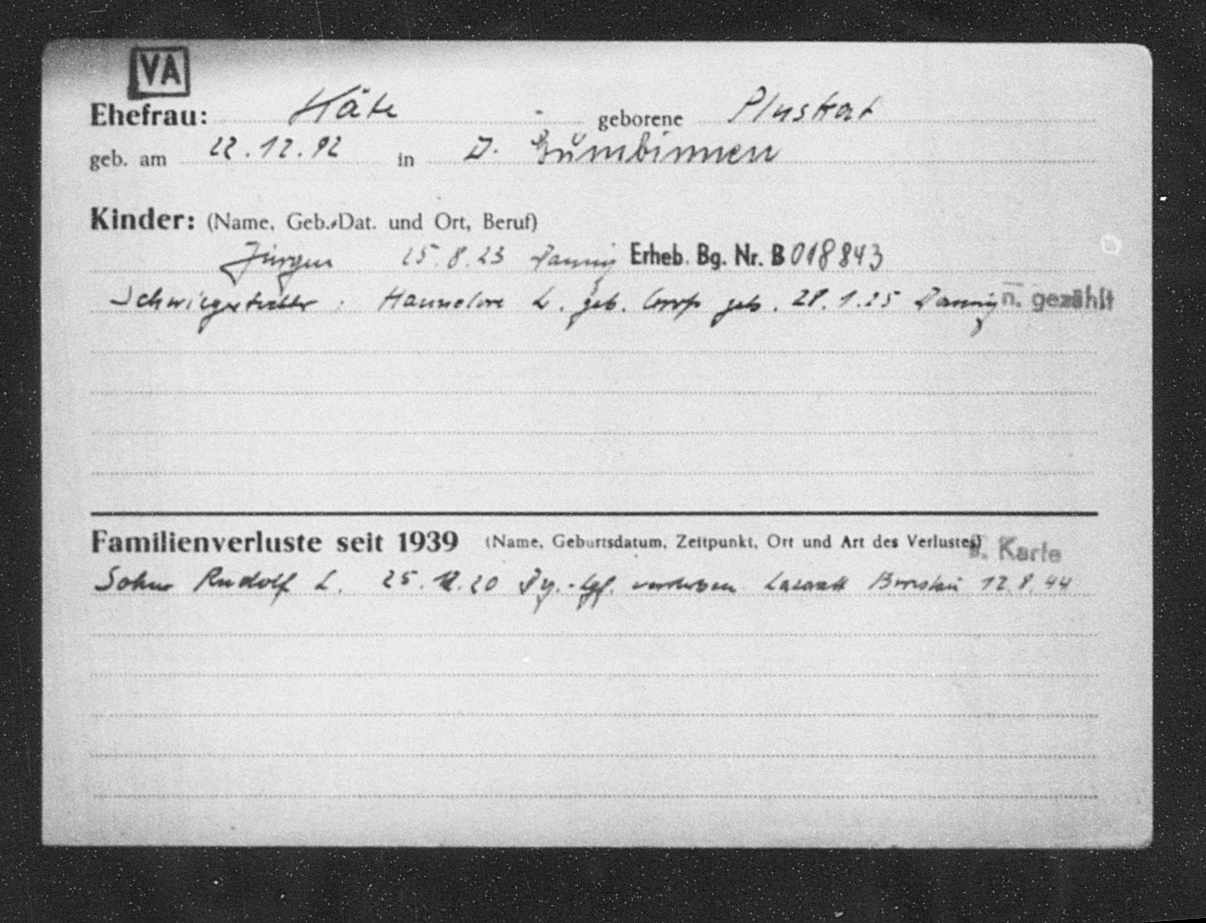 VA
Ehefrau: Käte geborene Pluskat
geb. am 22.12.92 in D. Gumbinnen
Kinder: (Name, Geb.-Dat. und Ort, Beruf)
Jürgen 15.8.23 Danzig Erheb. Bg. Nr. B 018843
Schwiegertochter : Hannelore L. geb. geb. 28.1.25 Danzig n. gezählt
Familienverluste seit 1939 (Name, Geburtsdatum, Zeitpunkt, Ort und Art des Verlustes) s. Karte
Sohn Rudolf L. 25. .20 verstorben Lazarett 12.8.44